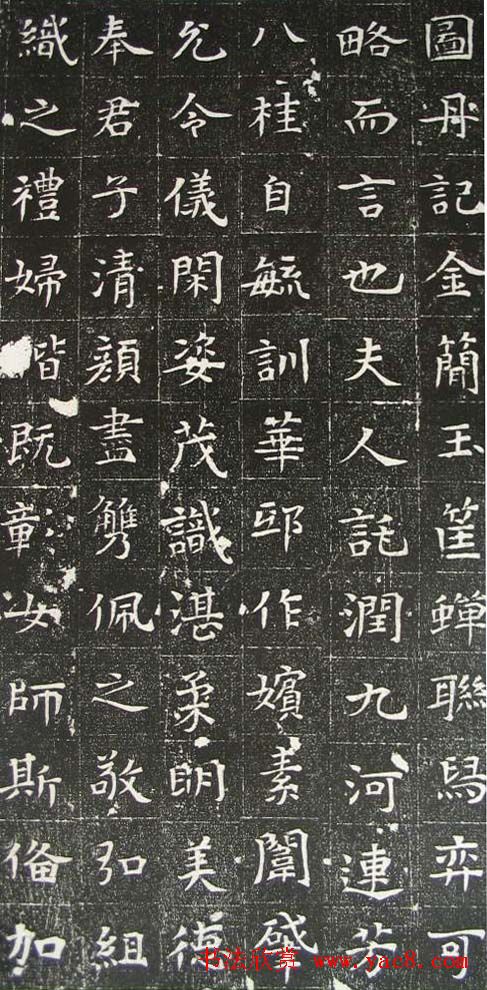 圖丹記金簡玉筐蟬聯舄弈可
略而言也夫人託潤九河連芳
八桂自毓訓華邛作嬪素闈盛
允令儀閑姿茂識湛柔明美德
奉君子清顏盡觿佩之敬弘組
織之禮婦既彰女師斯俻加
书法欣赏 www.yac8.com